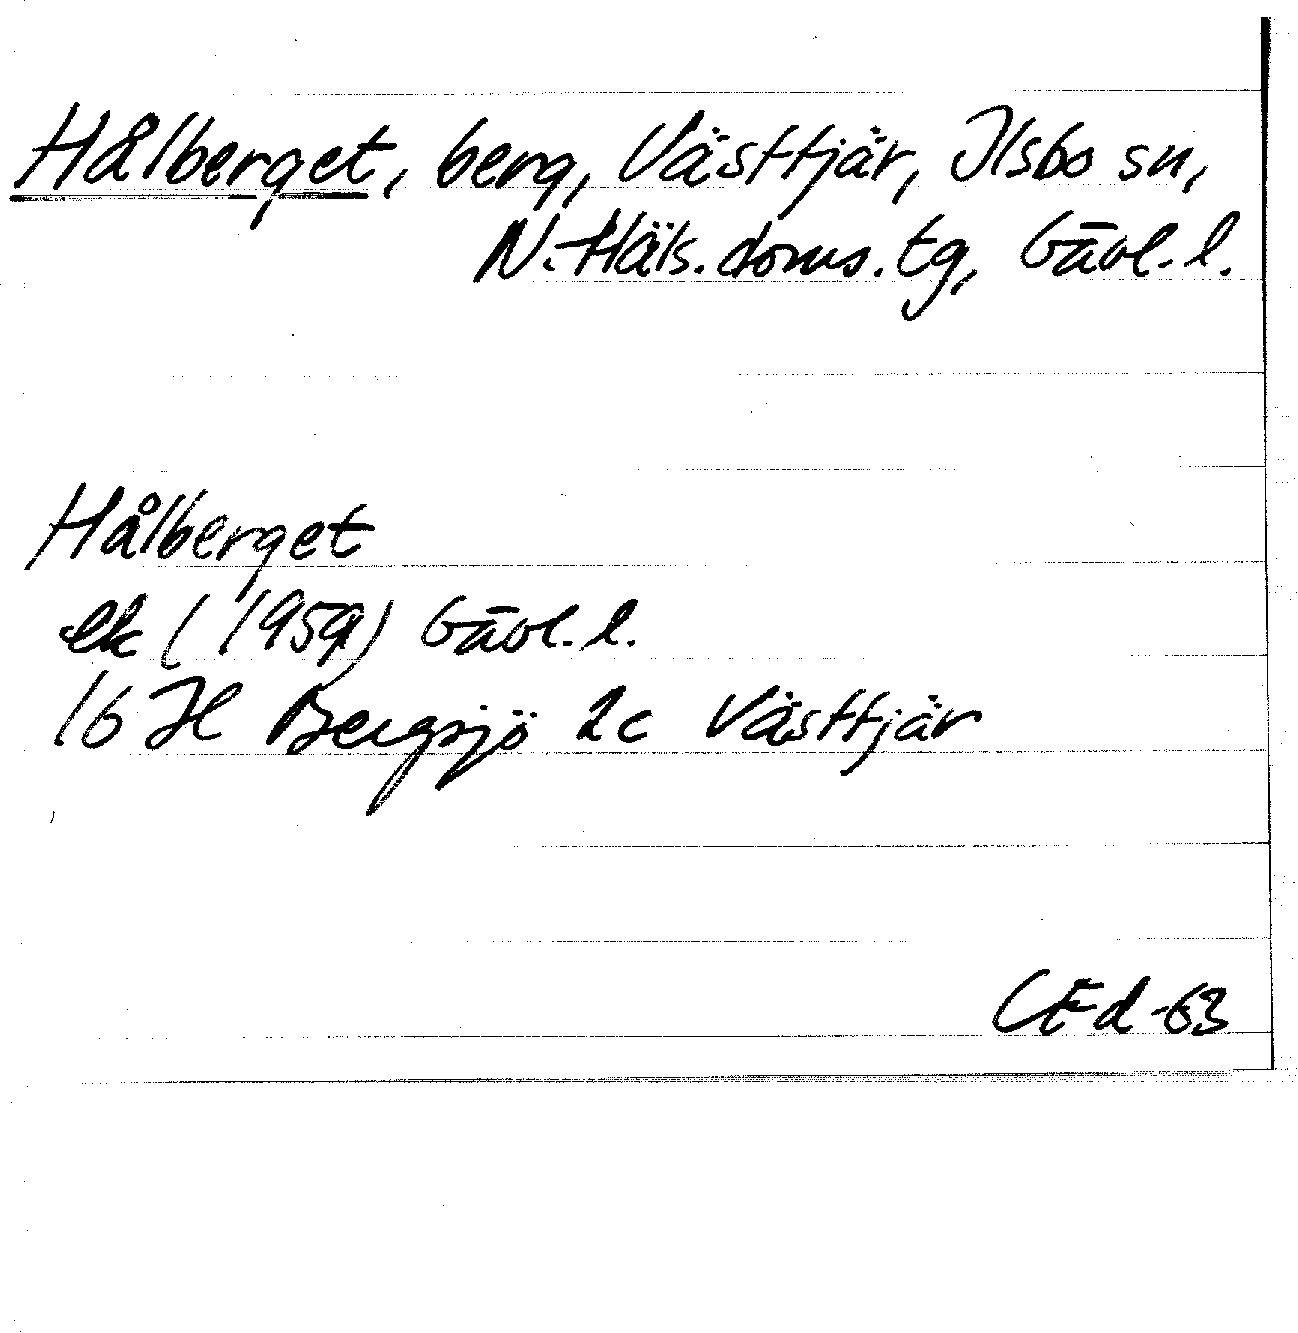 Hålberget, berg, Västtjär, Ilsbo sn,
N. Häls. doms. tg, Gävl. l.
Hålberget
ek (1959) Gävl. l.
16 H Bergsjö 2c Västtjär
CEd -63